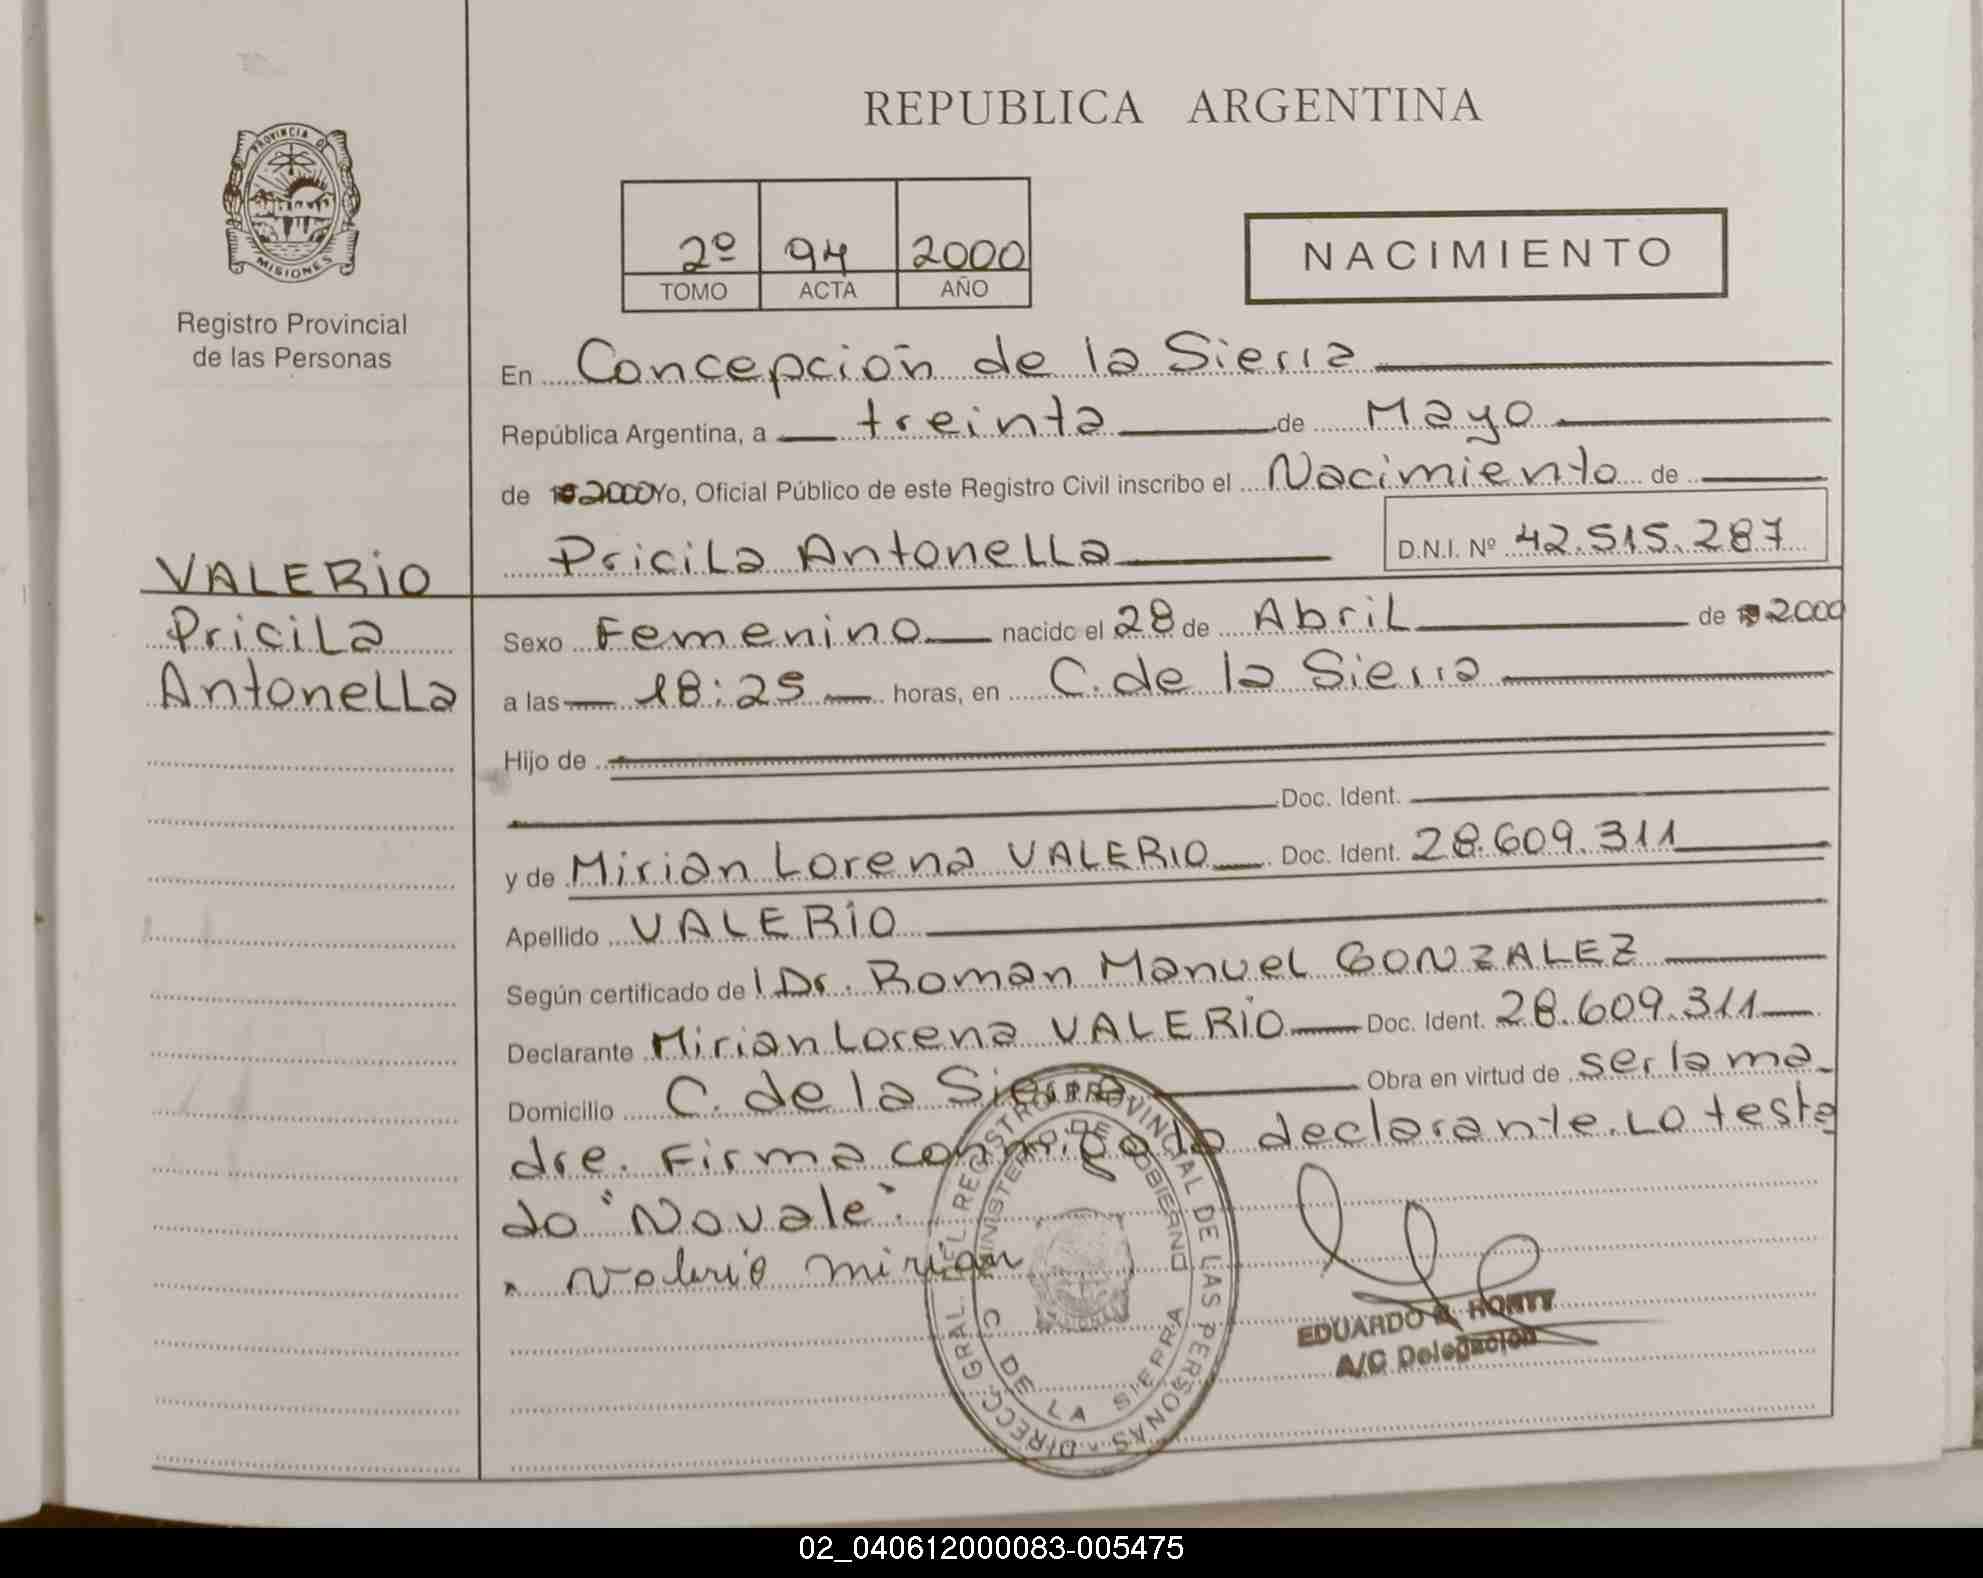 REPUBLICA ARGENTINA
PROVINCIA DE
MISIONES
Registro Provincial
de las Personas
2º 94 2000
TOMO ACTA AÑO
NACIMIENTO
En Concepción de la Sierra
República Argentina, a treinta de Mayo
de 2000 Yo, Oficial Público de este Registro Civil inscribo el Nacimiento de
Pricila Antonella D.N.I. Nº 42.515.287
VALERIO
Pricila
Antonella
Sexo Femenino nacido el 28 de Abril de 2000
a las 18:25 horas, en C. de la Sierra
Hijo de
Doc. Ident.
y de Mirian Lorena VALERIO Doc. Ident. 28.609.311
Apellido VALERIO
Según certificado del Dr. Roman Manuel GONZALEZ
Declarante Mirian Lorena VALERIO Doc. Ident. 28.609.311
Domicilio C. de la Sierra Obra en virtud de ser la ma_
dre. Firma conmigo la declarante. Lo testa
do "No vale".
Valerio Mirian
DIRECC. GRAL. DEL REGISTRO PROVINCIAL DE LAS PERSONAS
MINISTERIO DE GOBIERNO
C. DE LA SIERRA
EDUARDO
A/C Delegación
02_040612000083-005475